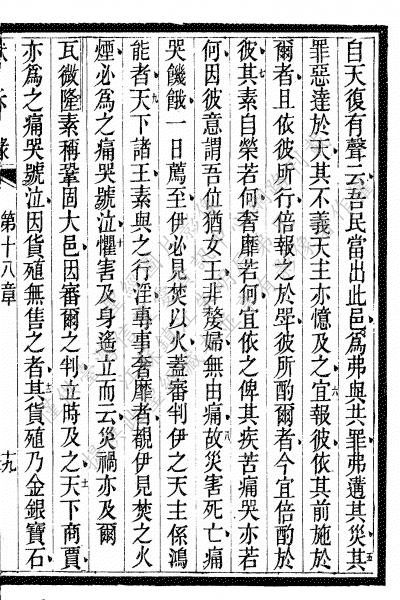 自天復有聲云吾民當出此邑爲弗與共罪弗遘其災其五
罪惡達於天其不義天主亦憶及之宜報彼依其前施於六
爾者且依彼所行倍報之於斝彼所酌爾者今宜倍酌於
彼其素自榮若何奢靡若何宜依之俾其疾苦痛哭亦若七
何因彼意謂吾位猶女王非嫠婦無由痛故災害死亡痛八
哭饑餓一日薦至伊必見焚以火蓋審判伊之天主係鴻
能者天下諸王素與之行淫專事奢靡者覩伊見焚之火九
煙必爲之痛哭號泣懼害及身遙立而云災禍亦及爾十
瓦微隆素稱鞏固大邑因審爾之判立時及之天下商賈十一
亦爲之痛哭號泣因貨殖無售之者其貨殖乃金銀寶石十二
第十八章
十九